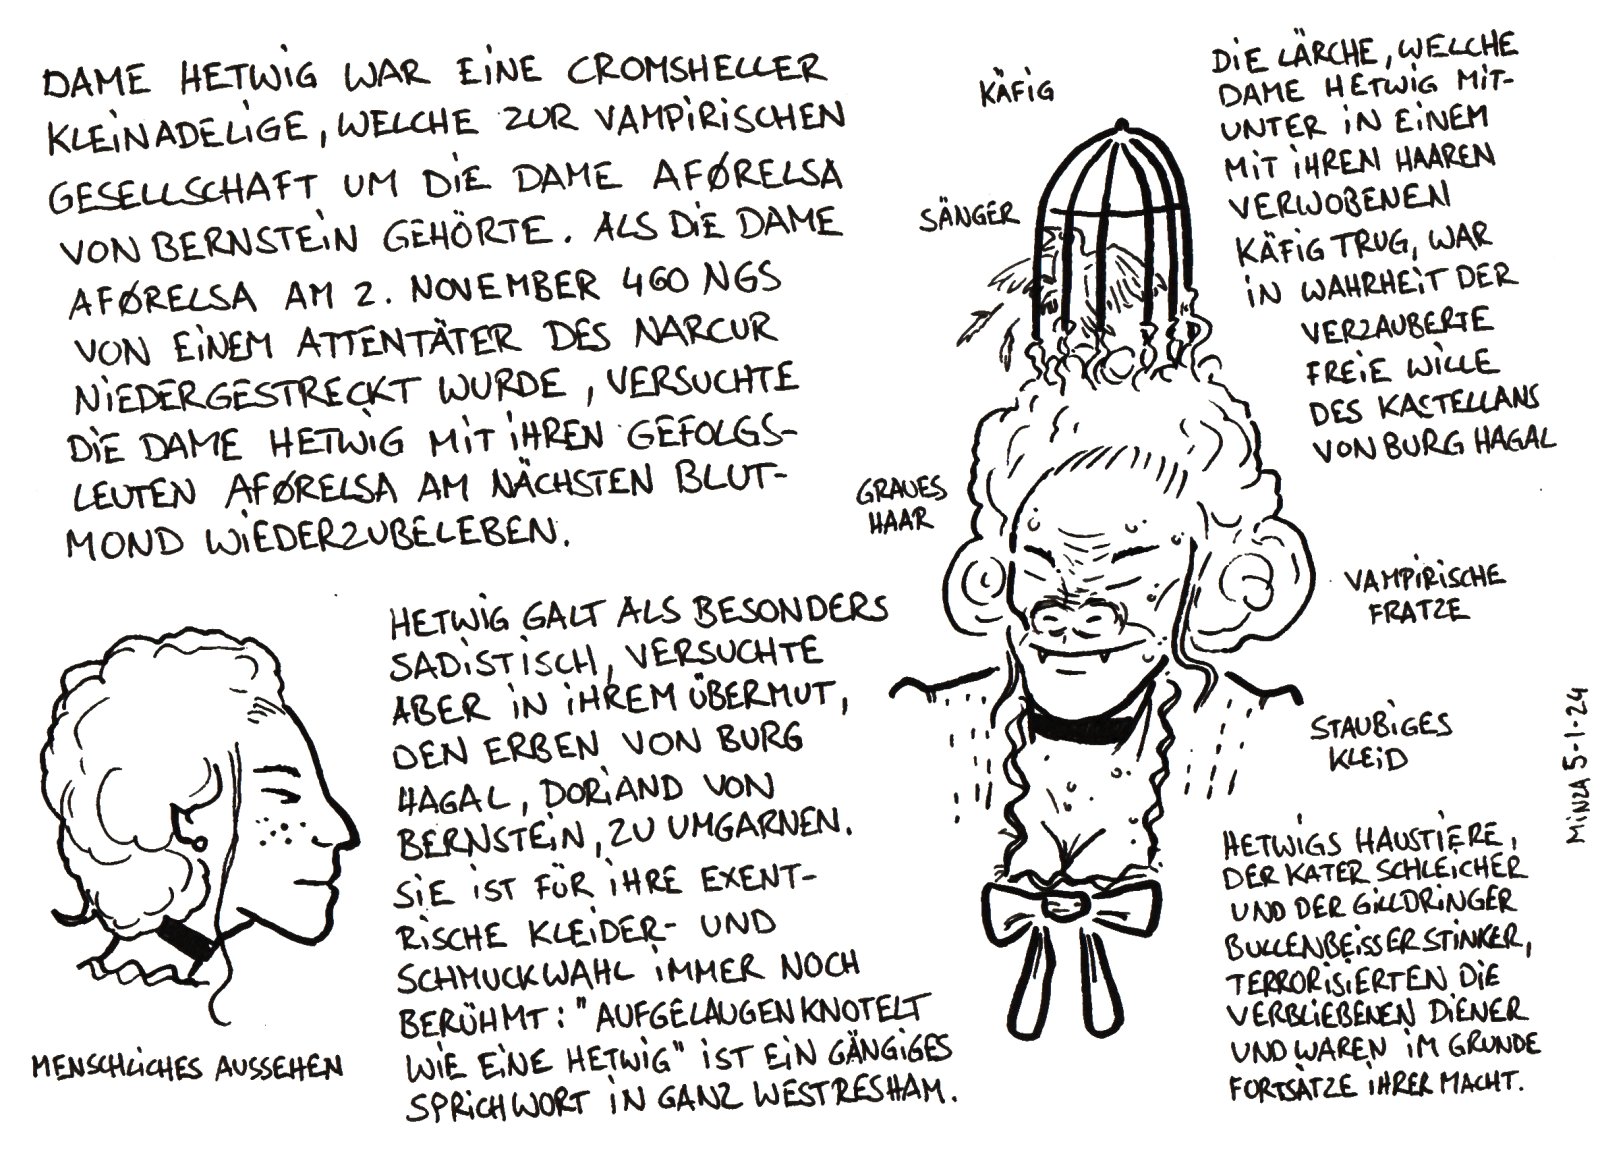 DAME HETWIG WAR EINE CROMSHELLER
KLEINADELIGE, WELCHE ZUR VAMPIRISCHEN
GESELLSCHAFT UM DIE DAME AFØRELSA
VON BERNSTEIN GEHÖRTE. ALS DIE DAME
AFØRELSA AM 2. NOVEMBER 460 NGS
VON EINEM ATTENTÄTER DES NARCUR
NIEDERGESTRECKT WURDE, VERSUCHTE
DIE DAME HETWIG MIT IHREN GEFOLGS-
LEUTEN AFØRELSA AM NÄCHSTEN BLUT-
MOND WIEDERZUBELEBEN.
KÄFIG
SÄNGER
GRAUES
HAAR
DIE LÄRCHE, WELCHE
DAME HETWIG MIT-
UNTER IN EINEM
MIT IHREN HAAREN
VERWOBENEN
KÄFIG TRUG, WAR
IN WAHRHEIT DER
VERZAUBERTE
FREIE WILLE
DES KASTELLANS
VON BURG HAGAL
VAMPIRISCHE
FRATZE
STAUBIGES
KLEID
HETWIG GALT ALS BESONDERS
SADISTISCH, VERSUCHTE
ABER IN IHREM ÜBERMUT,
DEN ERBEN VON BURG
HAGAL, DORIAND VON
BERNSTEIN, ZU UMGARNEN.
SIE IST FÜR IHRE EXENT-
RISCHE KLEIDER- UND
SCHMUCKWAHL IMMER NOCH
BERÜHMT: "AUFGELAUGENKNOTELT
WIE EINE HETWIG" IST EIN GÄNGIGES
SPRICHWORT IN GANZ WESTRESHAM.
MENSCHLICHES AUSSEHEN
HETWIGS HAUSTIERE,
DER KATER SCHLEICHER
UND DER GILLDRINGER
BULLENBEISSER STINKER,
TERRORISIERTEN DIE
VERBLIEBENEN DIENER
UND WAREN IM GRUNDE
FORTSÄTZE IHRER MACHT.
MINZA 5.1.24